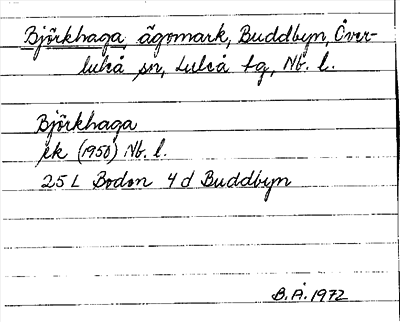 Björkhaga, ägomark, Buddbyn, Över-
luleå sn, Luleå tg, Nb. l.
Björkhaga
ek (1950) Nb. l.
25 L Boden 4 d Buddbyn
B. Å. 1972